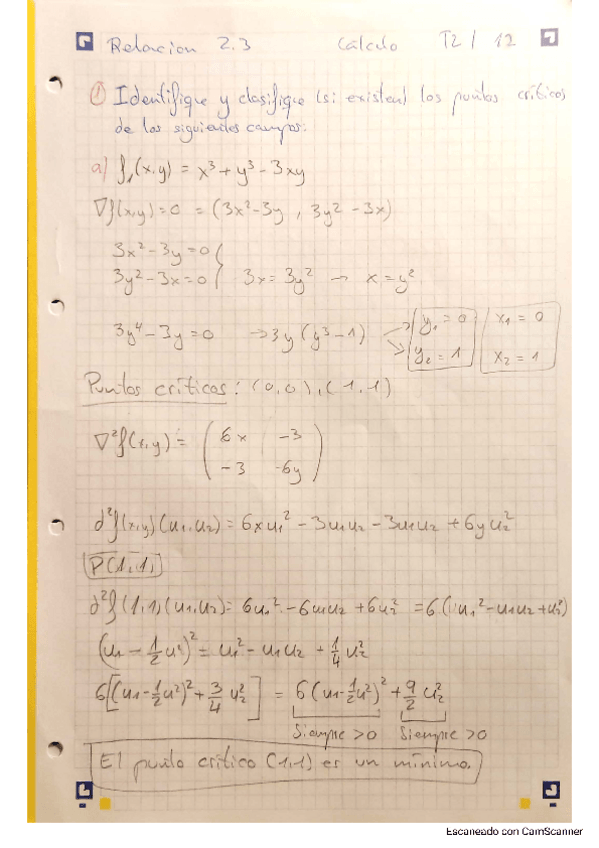 Relacion 2.3 Cálculo T2 / 12
① Identifique y clasifique (si existen) los puntos críticos
de los siguientes campos:
a) f₁(x,y) = x³ + y³ - 3xy
∇f(x,y) = 0 = (3x² - 3y , 3y² - 3x)
3x² - 3y = 0
3y² - 3x = 0 } 3x = 3y² → x = y²
3y⁴ - 3y = 0 → 3y (y³ - 1) y₁ = 0 x₁ = 0
y₂ = 1 x₂ = 1
Puntos críticos: (0,0), (1,1)
∇²f(x,y) = ( 6x -3
-3 -6y )
d²f(x,y)(u₁,u₂) = 6xu₁² - 3u₁u₂ - 3u₁u₂ + 6yu₂²
P(1,1)
d²f(1,1)(u₁,u₂) = 6u₁² - 6u₁u₂ + 6u₂² = 6(u₁² - u₁u₂ + u₂²)
(u₁ - 1/2 u²)² = u₁² - u₁u₂ + 1/4 u₂²
6[(u₁ - 1/2 u²)² + 3/4 u₂²] = 6(u₁ - 1/2 u²)² + 9/2 u₂²
Siempre >0 Siempre >0
El punto crítico (1,1) es un mínimo.
Escaneado con CamScanner